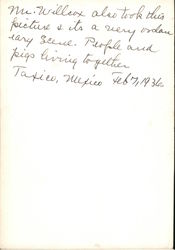 Mr. Willcox also took this
picture & its a very ordin
ary scene. People and
pigs living together
Taxico, Mexico Feb 7, 1936